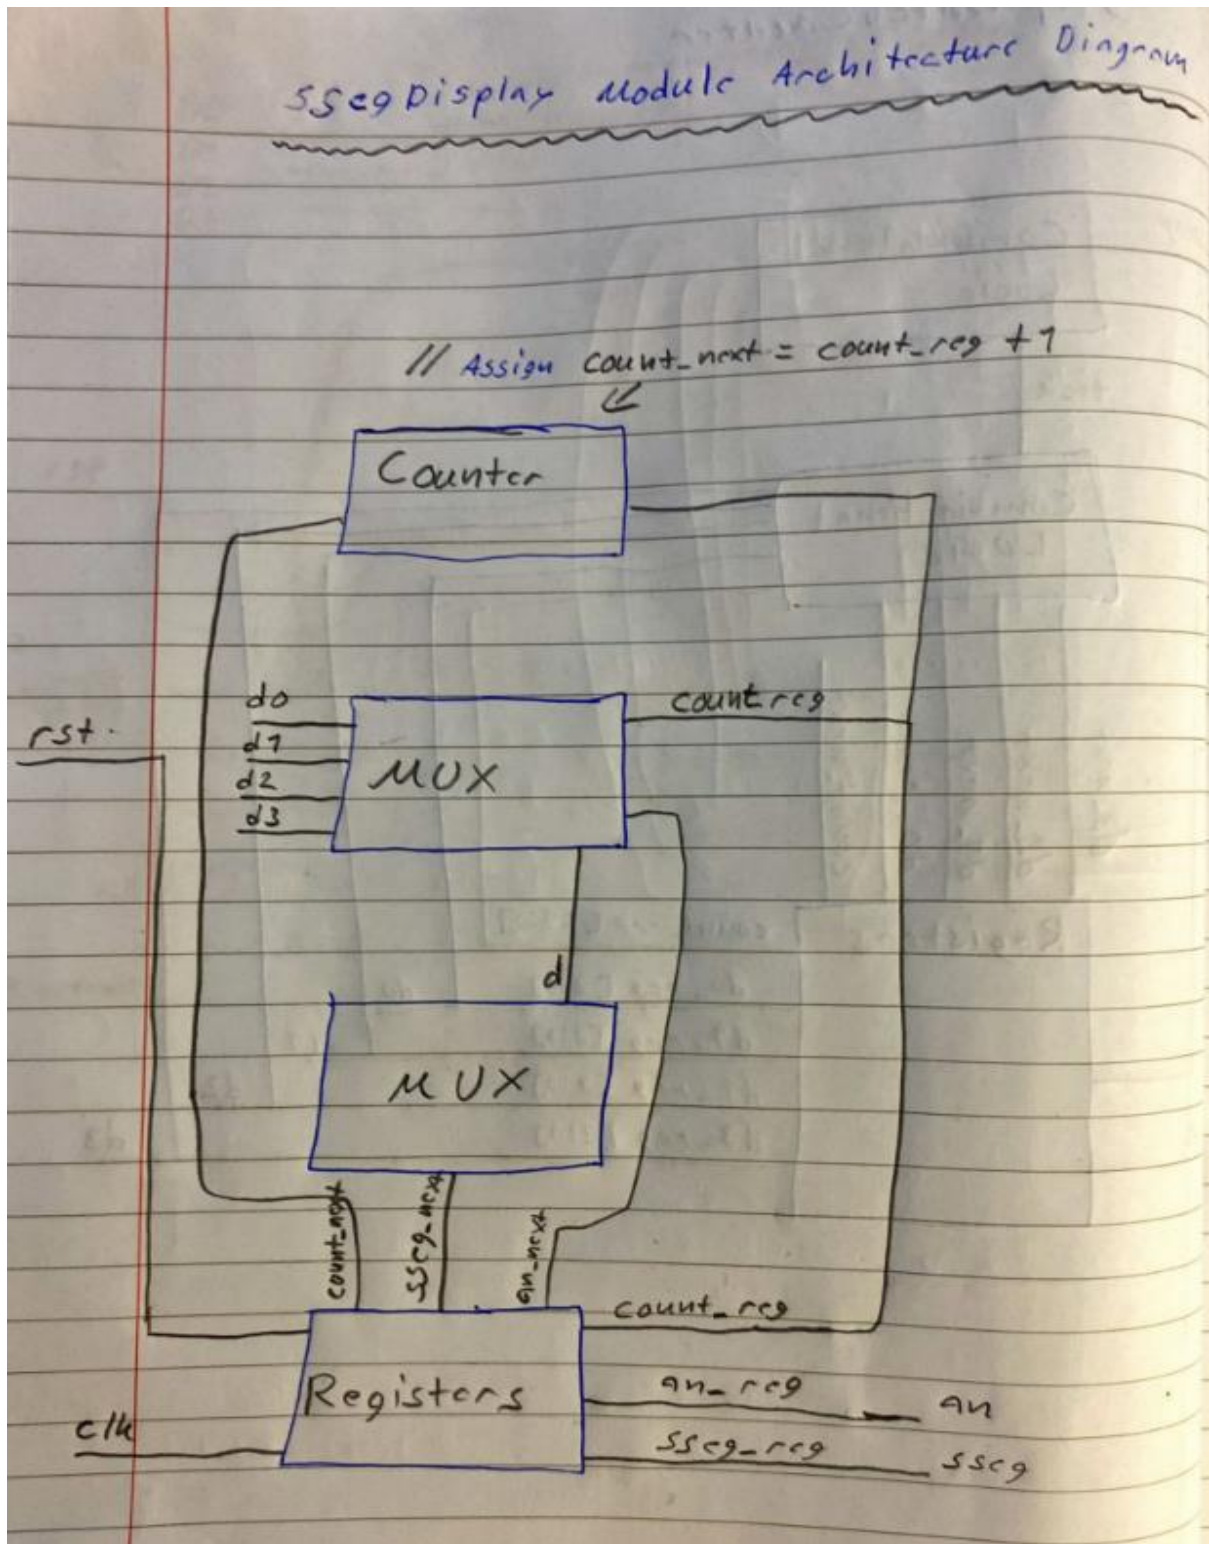 SSegDisplay Module Architecture Diagram
// Assign count_next = count_reg + 1
Counter
d0
count reg
rst.
d1
MUX
d2
d3
d
MUX
count_next
sseg_next
an_next
count_reg
Registers
an_reg
an
clk
sseg_reg
sseg